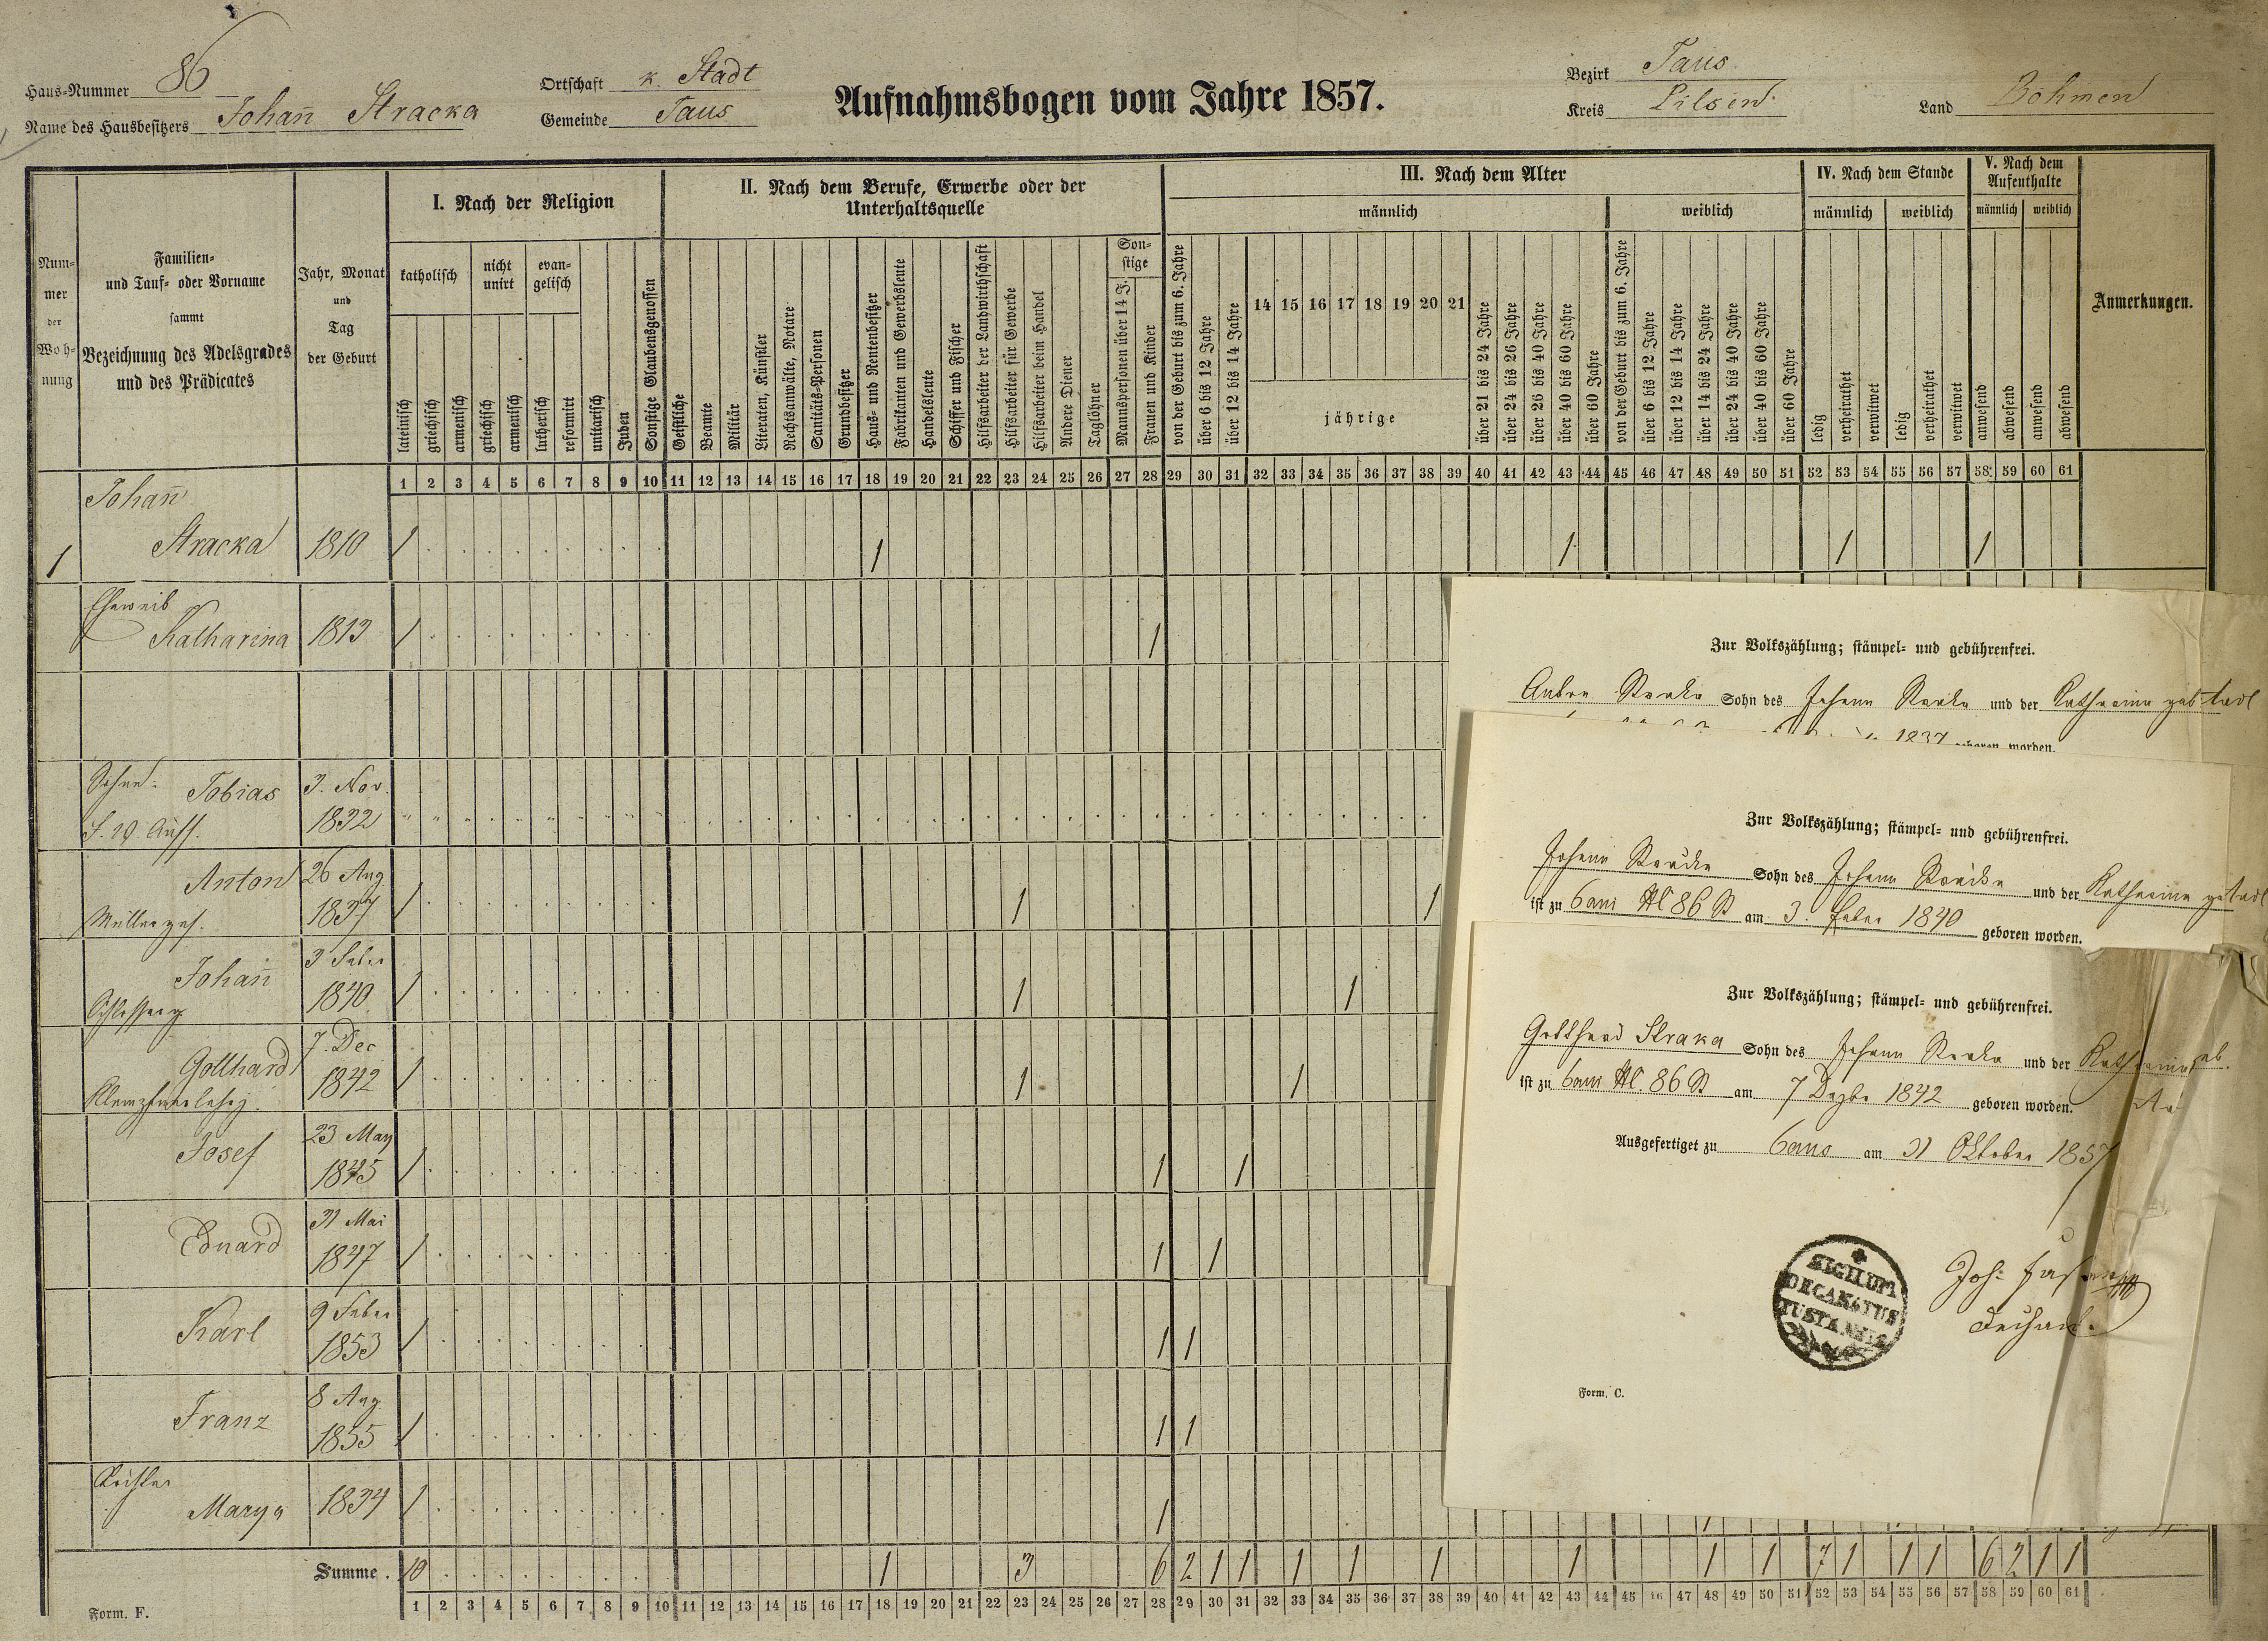 Haus-Nummer 86
Name des Hausbesitzers Johan̄ Stracka
Ortschaft k. Stadt
Gemeinde Taus
Aufnahmsbogen vom Jahre 1857.
Bezirk Taus
Kreis Pilsen
Land Böhmen
Num-
mer
der
Woh-
nung
Familien-
und Tauf- oder Vorname
sammt
Bezeichnung des Adelsgrades
und des Prädicates
Jahr, Monat
und
Tag
der Geburt
I. Nach der Religion
katholisch
nicht
unirt
evan-
gelisch
lateinisch
griechisch
armenisch
griechisch
armenisch
lutherisch
reformirt
unitarisch
Juden
Sonstige Glaubensgenossen
II. Nach dem Berufe, Erwerbe oder der
Unterhaltsquelle
Geistliche
Beamte
Militär
Literaten, Künstler
Rechtsanwälte, Notare
Sanitäts-Personen
Grundbesitzer
Haus- und Rentenbesitzer
Fabrikanten und Gewerbsleute
Handelsleute
Schiffer und Fischer
Hilfsarbeiter der Landwirthschaft
Hilfsarbeiter für Gewerbe
Hilfsarbeiter beim Handel
Andere Diener
Taglöhner
Son-
stige
Mannspersonen über 14 J.
Frauen und Kinder
III. Nach dem Alter
männlich
von der Geburt bis zum 6. Jahre
über 6 bis 12 Jahre
über 12 bis 14 Jahre
14 15 16 17 18 19 20 21
jährige
über 21 bis 24 Jahre
über 24 bis 26 Jahre
über 26 bis 40 Jahre
über 40 bis 60 Jahre
über 60 Jahre
weiblich
von der Geburt bis zum 6. Jahre
über 6 bis 12 Jahre
über 12 bis 14 Jahre
über 14 bis 24 Jahre
über 24 bis 40 Jahre
über 40 bis 60 Jahre
über 60 Jahre
IV. Nach dem Stande
männlich weiblich
ledig
verheirathet
verwitwet
ledig
verheirathet
verwitwet
V. Nach dem
Aufenthalte
männlich weiblich
anwesend
abwesend
anwesend
abwesend
Anmerkungen.
1 2 3 4 5 6 7 8 9 10 11 12 13 14 15 16 17 18 19 20 21 22 23 24 25 26 27 28 29 30 31 32 33 34 35 36 37 38 39 40 41 42 43 44 45 46 47 48 49 50 51 52 53 54 55 56 57 58 59 60 61
Johan̄
1 Stracka 1810 1 1 1 1 1
Eheweib
Katharina 1813 1 1
Söhne: Tobias 3. Nov.
1832
Anton 26 Aug
Müllerges. 1837 1 1 1
Johan̄ 3 Feber
1840 1 1 1
Gotthard 7. Dec
1842 1 1 1
Josef 23 May
1845 1 1 1
Eduard 31 Mai
1847 1 1 1
Karl 9 Feber
1853 1 1 1
Franz 8 Aug.
1855 1 1 1
Marya 1834 1 1
Summe. 10 1 3 6 2 1 1 1 1 1 1 1 1 7 1 1 1 6 2 1 1
1 2 3 4 5 6 7 8 9 10 11 12 13 14 15 16 17 18 19 20 21 22 23 24 25 26 27 28 29 30 31 32 33 34 35 36 37 38 39 40 41 42 43 44 45 46 47 48 49 50 51 52 53 54 55 56 57 58 59 60 61
Form. F.
Zur Volkszählung; stämpel- und gebührenfrei.
Anton Straka Sohn des Johann Straka und der Katharina
1837 geboren worden.
Zur Volkszählung; stämpel- und gebührenfrei.
Johann Stracka Sohn des Johann Stracka und der Katharina
ist zu Taus No 86 St am 3. Feber 1840 geboren worden.
Zur Volkszählung; stämpel- und gebührenfrei.
Gotthard Straka Sohn des Johann Straka und der Katharina
ist zu Taus No. 86 St am 7 Dezbr 1842 geboren worden.
Ausgefertiget zu Taus am 31 Oktober 1857
SIGILUM
DECANATUS
TUSTANSIS
Joh:
Dechant.
Form. C.